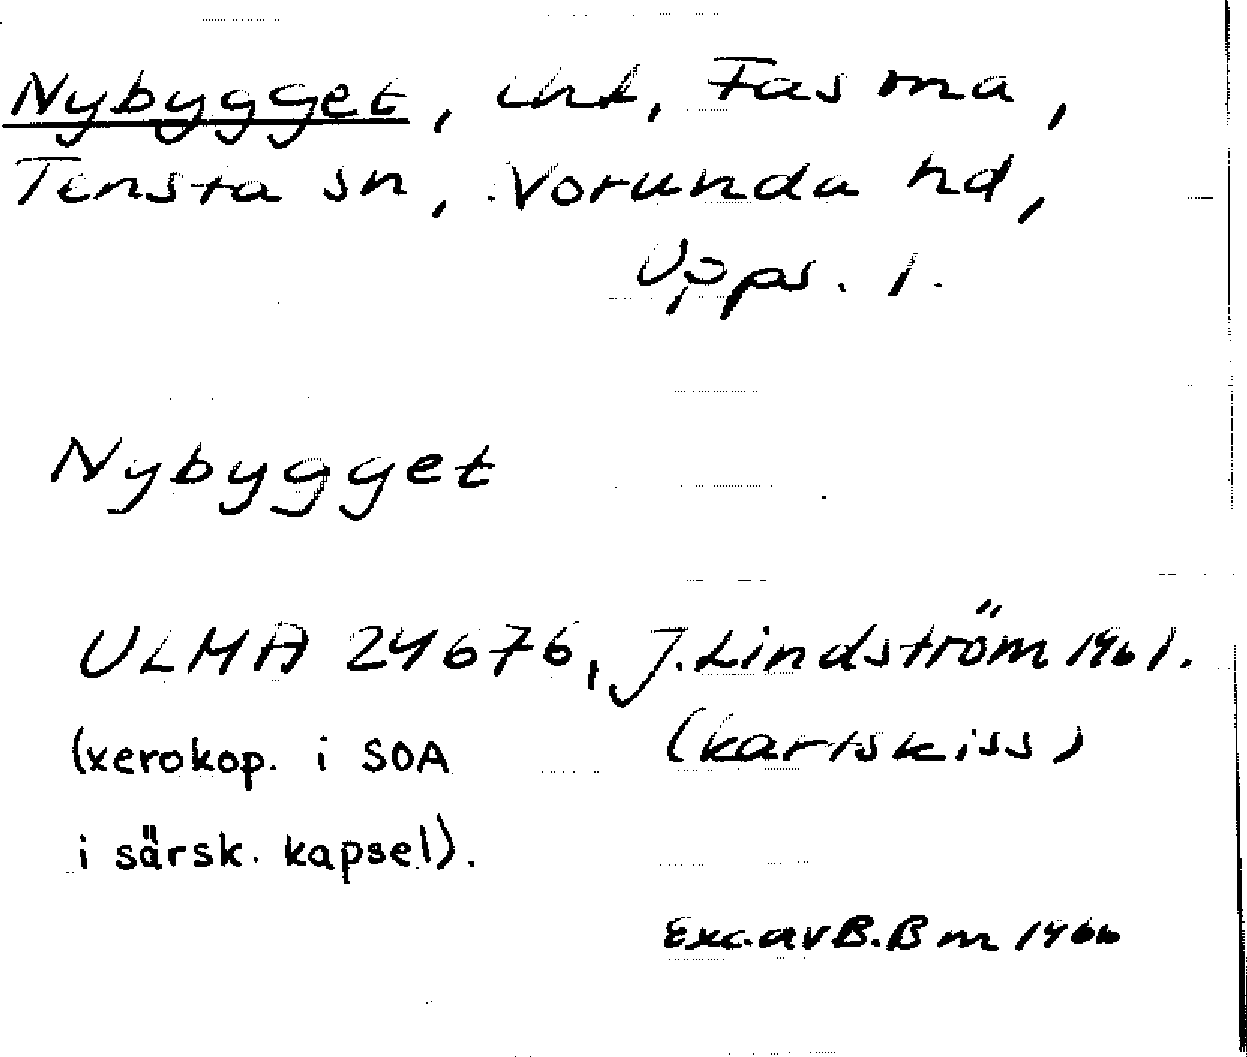 Nybygget, lht, Fasma,
Tensta sn, Vorunda hd,
Upps. l.
Nybygget
ULMA 24676, J. Lindström 1961.
(xerokop. i SOA (kartskiss)
i särsk. kapsel).
Exc. av B. Bm 1966